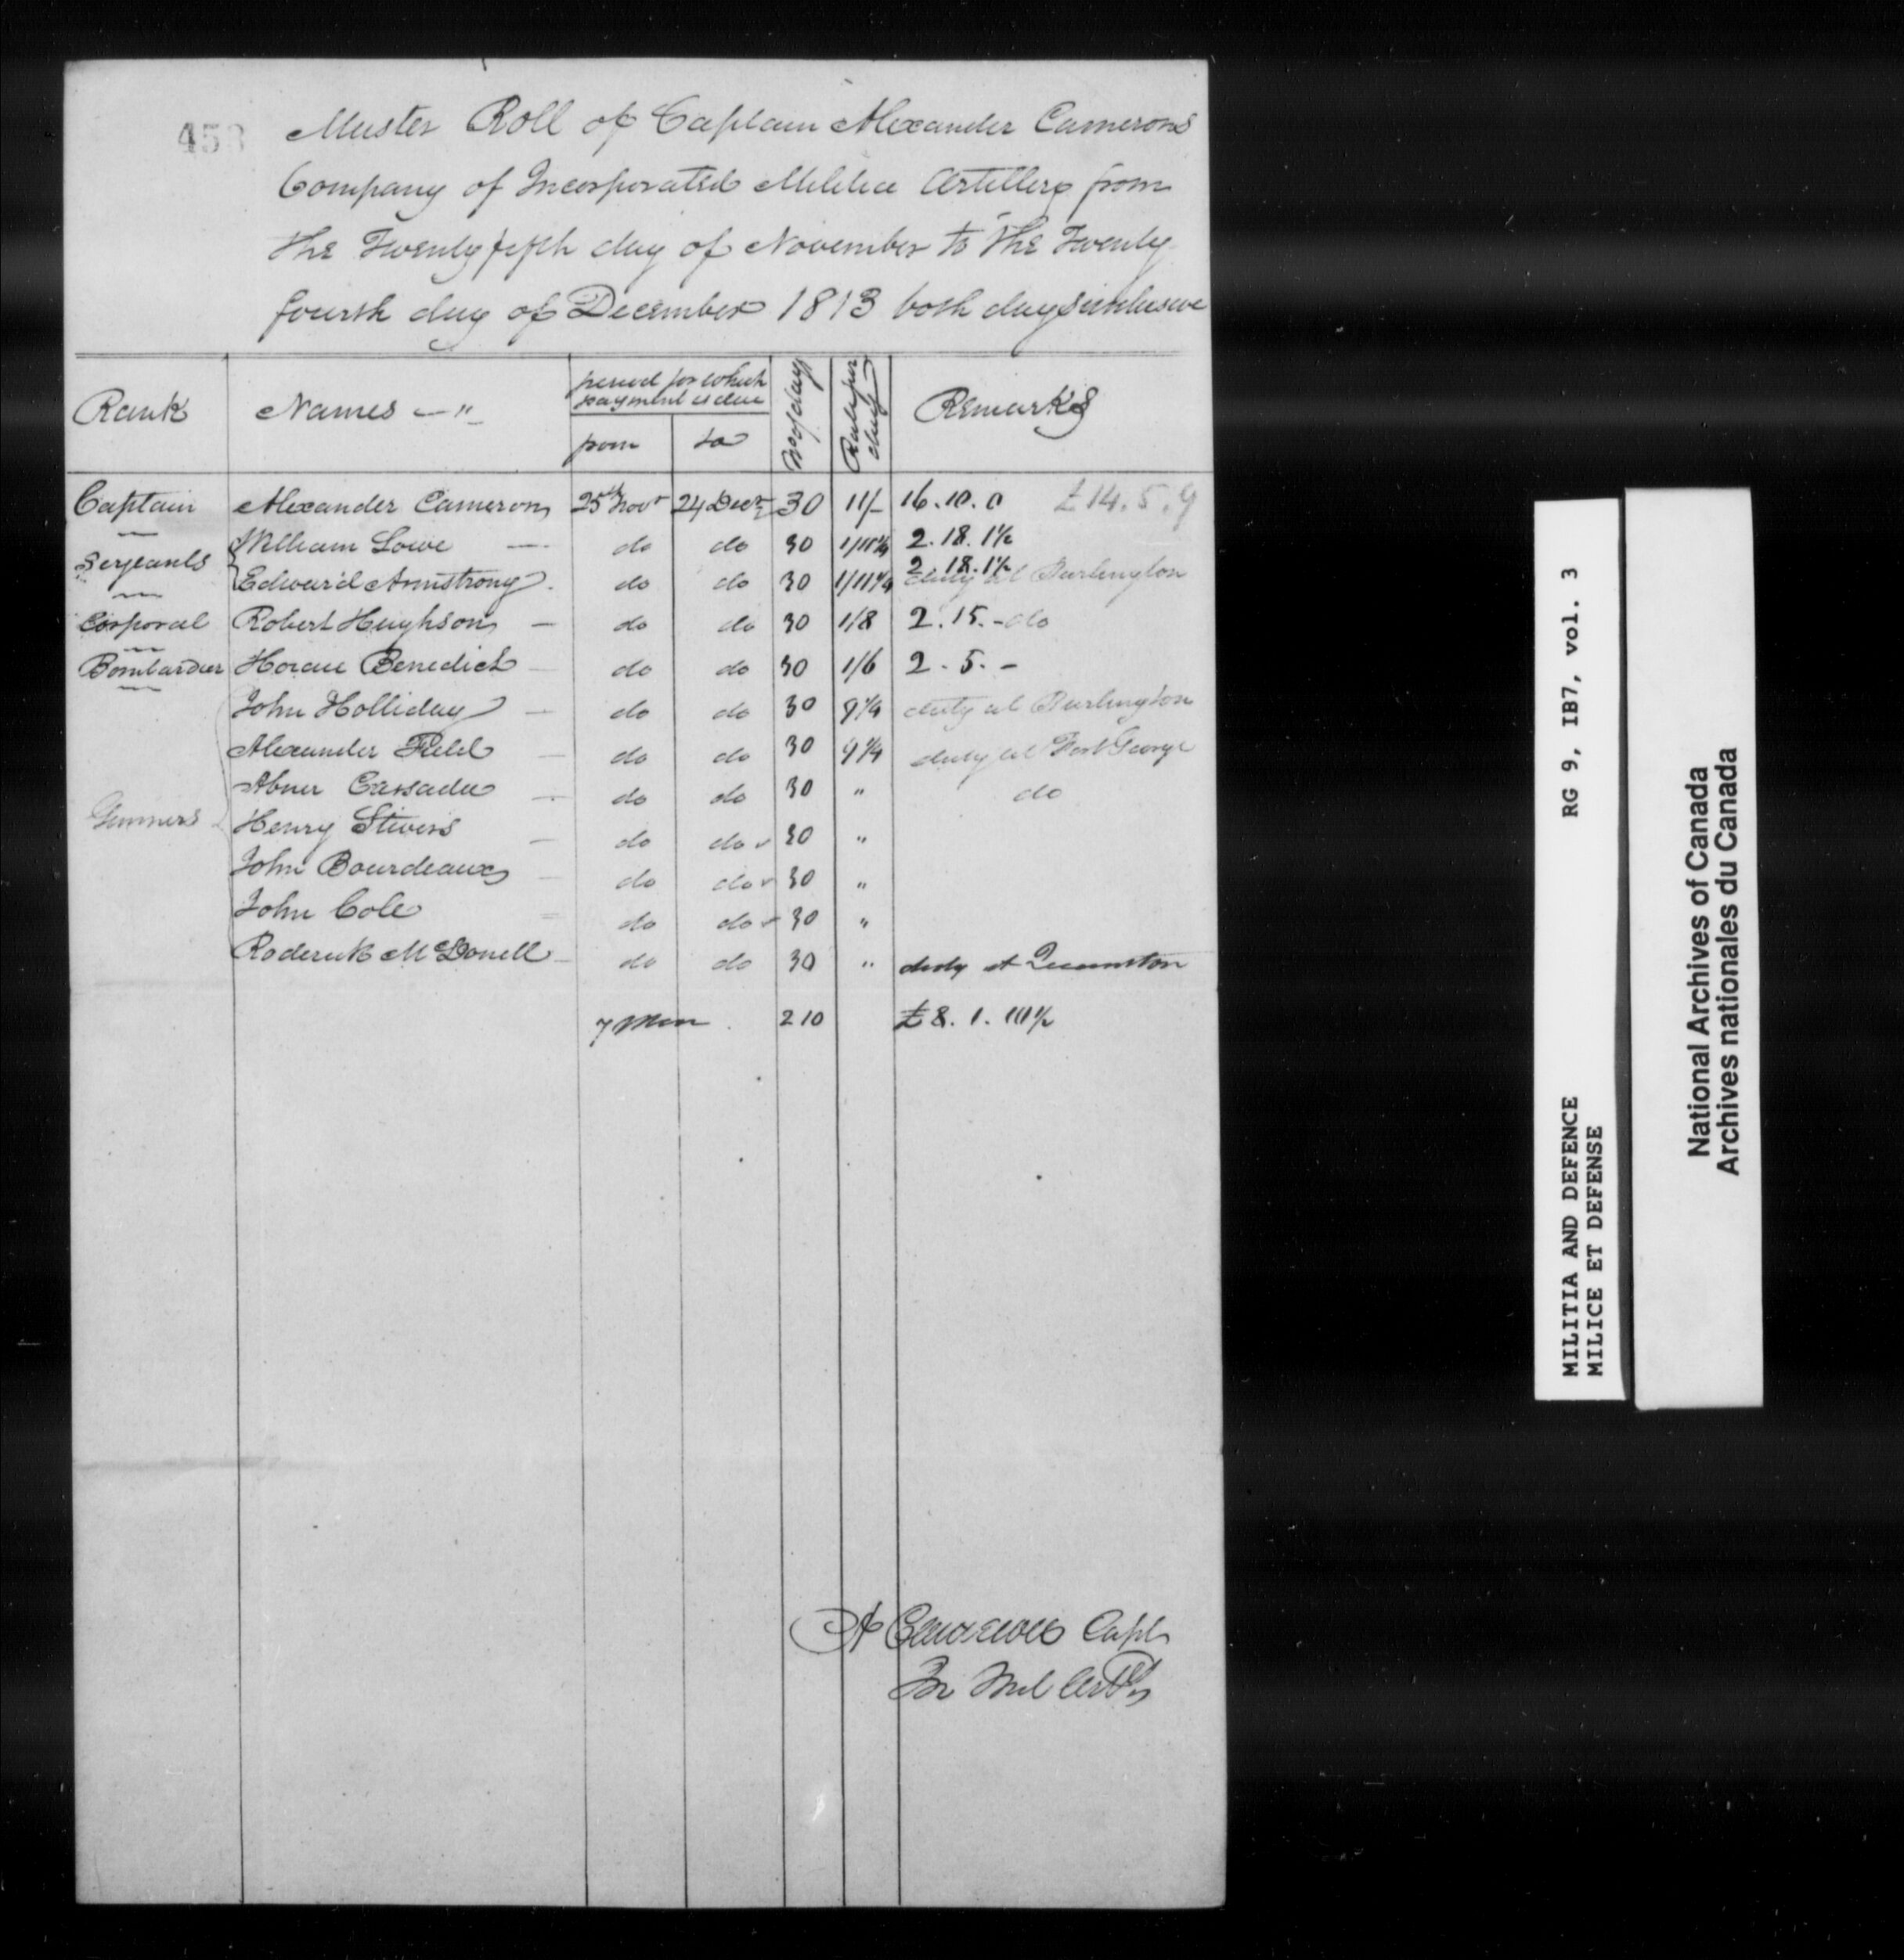 453
Muster Roll of Captain Alexander Camerons
Company of Incorporated Militia Artillery from
the Twenty fifth day of November to the Twenty
fourth day of December 1813 both days inclusive
Rank Names period for which payment is due from to No of days Rate per day Remarks
Captain Alexander Cameron 25th Novr 24 Decr 30 11/- 16.10.0 £14.5.9
Serjeants William Lowe do do 30 1/11¼ 2.18.1½
Edward Armstrong do do 30 1/11¼ 2.18.1½ duty at Burlington
Corporal Robert Hughson do do 30 1/8 2.15.- do
Bombardier Horace Benedict do do 30 1/6 2.5.-
John Holliday do do 30 9¼ duty at Burlington
Alexander Field do do 30 9¼ duty at Fort George
Abner Cassada do do 30 " do
Gunners Henry Stivers do do 30 "
John Bourdeaux do do 30 "
John Cole do do 30 "
Roderick McDonell do do 30 " duty at Queenston
7 Men 210 £8.1.10½
A Cameron Capt
In Mil Arty
MILITIA AND DEFENCE RG 9, IB7, vol. 3
MILICE ET DEFENSE
National Archives of Canada
Archives nationales du Canada